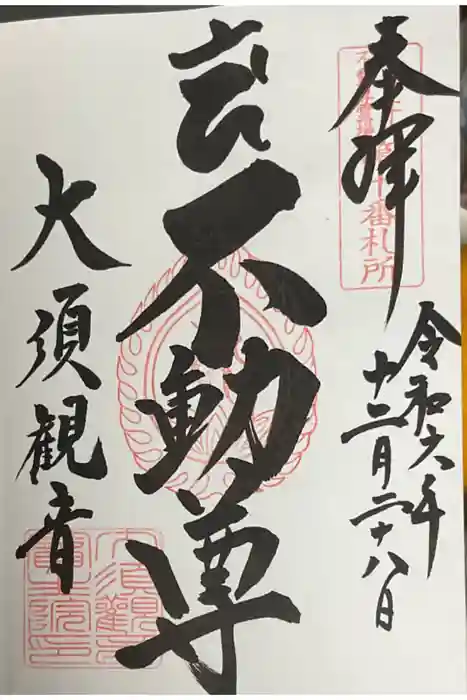 奉拝
令和六年
十二月二十八日
不動尊
大須観音
番札所